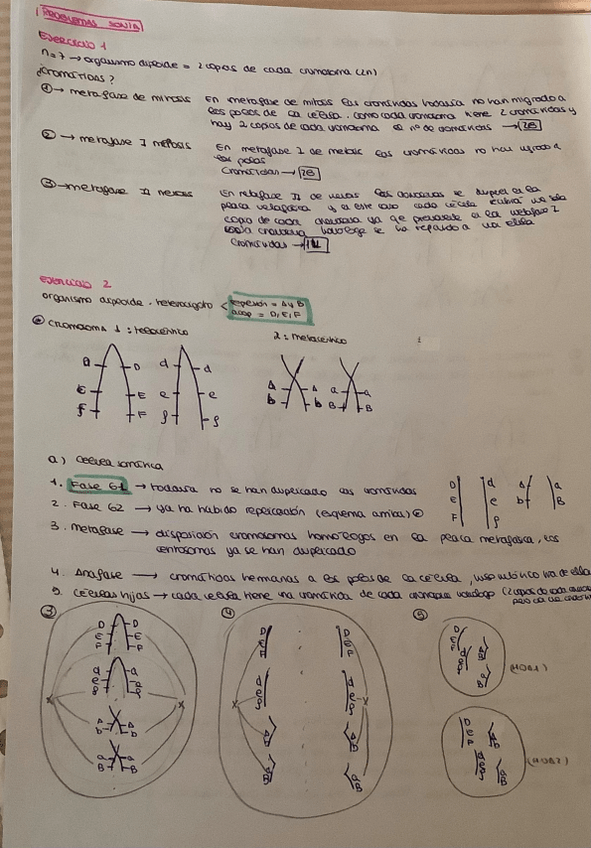 PROBLEMAS SONIA
EJERCICIO 1
n=7 → organismo diploide = 2 copias de cada cromosoma (2n)
¿Cromátidas?
① → metafase de mitosis En metafase de mitosis las cromátidas todavía no han migrado a
los polos de la célula. Como cada cromosoma tiene 2 cromátidas y
hay 2 copias de cada cromosoma el nº de cromátidas → 28
② → metafase I meiosis En metafase I de meiosis las cromátidas no han migrado a
los polos
Cromátidas → 28
③ → metafase II meiosis En metafase II de meiosis los cromosomas se en la
placa metafásica y en este caso cada célula una sola
copia de cada cromosoma ya que en la metafase I
cada cromosoma homólogo se ha repartido a una célula
Cromátidas → 14
EJERCICIO 2
organismo diploide. heterocigoto < repulsión = A y B
acop = D, E, F
cromosoma 1: telocéntrico 2: metacéntrico
D D d d
E E e e A A a a
F F f f b b B B
a) Célula somática
1. Fase G1 → todavía no se han duplicado las cromátidas
D d A a
E e b B
F f
2. Fase G2 → ya ha habido replicación (esquema arriba)
3. Metafase → disposición cromosomas homólogos en la placa metafásica, los
centrosomas ya se han duplicado
4. Anafase → cromátidas hermanas a los polos de la célula, huso mitótico tira de ellas
5. Células hijas → cada célula tiene una cromátida de cada cromosoma homólogo
③ ④ ⑤
D D D D
E E E E
F F F F
d d d d
e e e e
f f f f
A A A A
b b b b
a a a a
B B B B
(HIJA 1)
(HIJA 2)